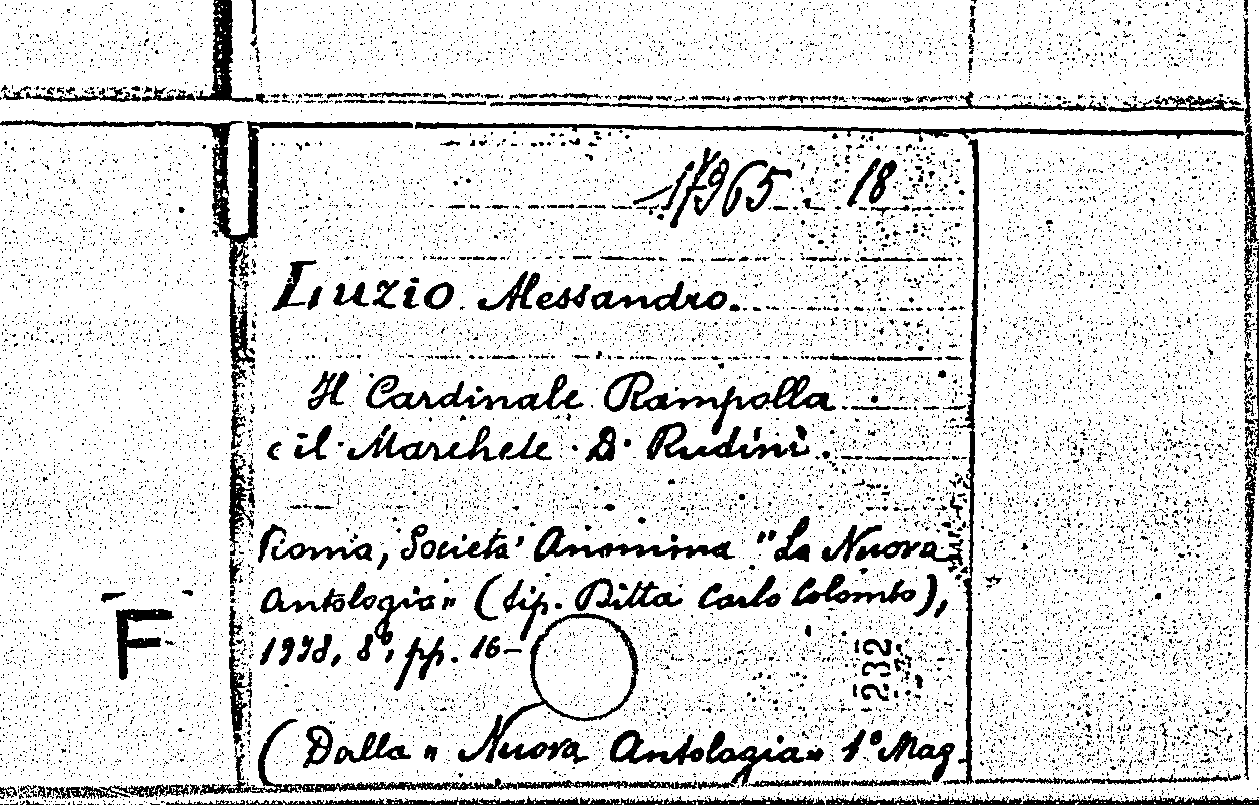 17965 . 18
Luzio Alessandro.
Il Cardinale Rampolla
e il Marchese Di Rudinì.
Roma, Società Anonima "La Nuova
Antologia" (tip. Ditta Carlo Colombo),
1938, 8°, pp. 16-
F
232
(Dalla "Nuova Antologia" 1° Mag.